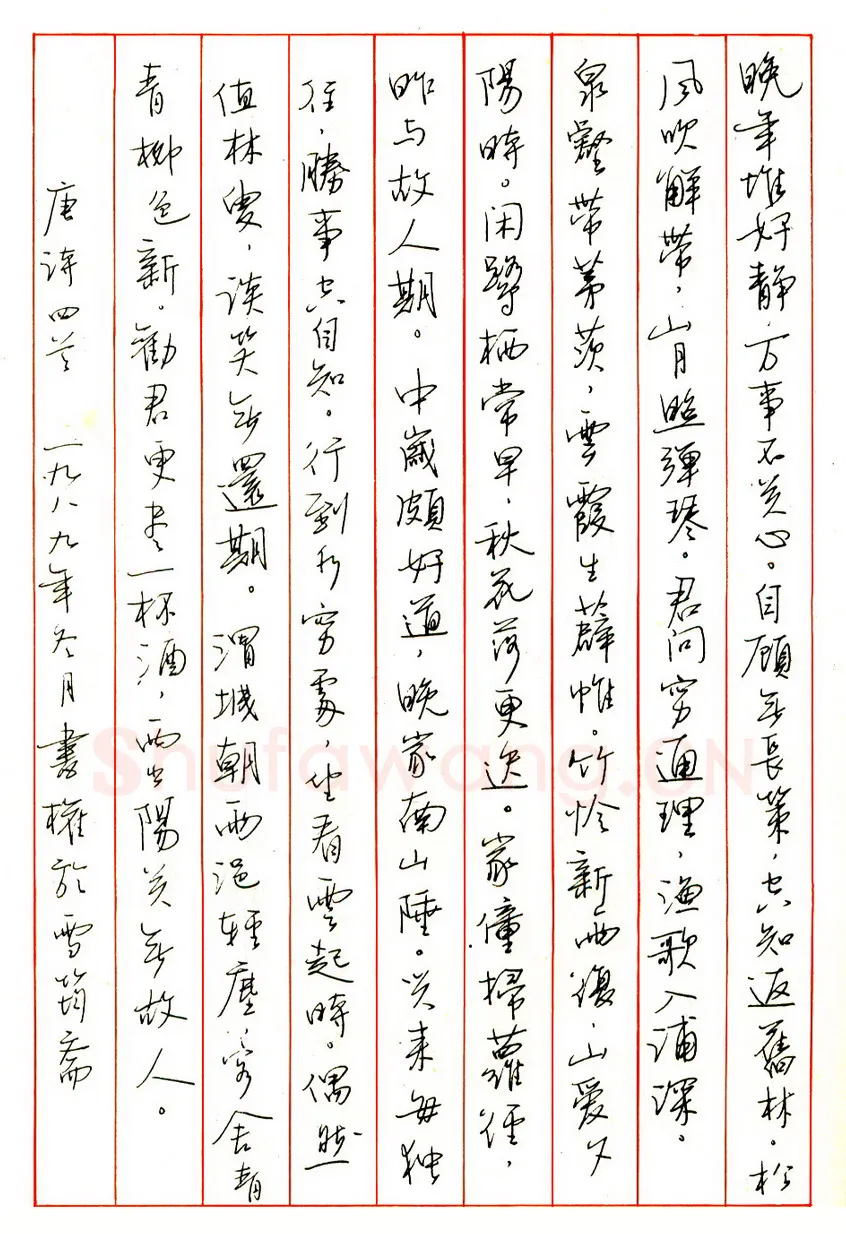 晚年惟好静，万事不关心。自顾無長策，空知返舊林。松
风吹解带，山月照弹琴。君问穷通理，渔歌入浦深。
泉壑带茅茨，雲霞生薜帷。竹怜新雨後，山爱夕
陽時。闲鹭栖常早，秋花落更迟。家僮掃蘿徑，
昨与故人期。中歲颇好道，晚家南山陲。兴来每独
往，勝事空自知。行到水穷處，坐看雲起時。偶然
值林叟，谈笑無還期。渭城朝雨浥輕塵，客舍青
青柳色新。勸君更尽一杯酒，西出陽关無故人。
唐诗四首 一九八九年冬月 書權於雪筠斋
Shufawang.CN